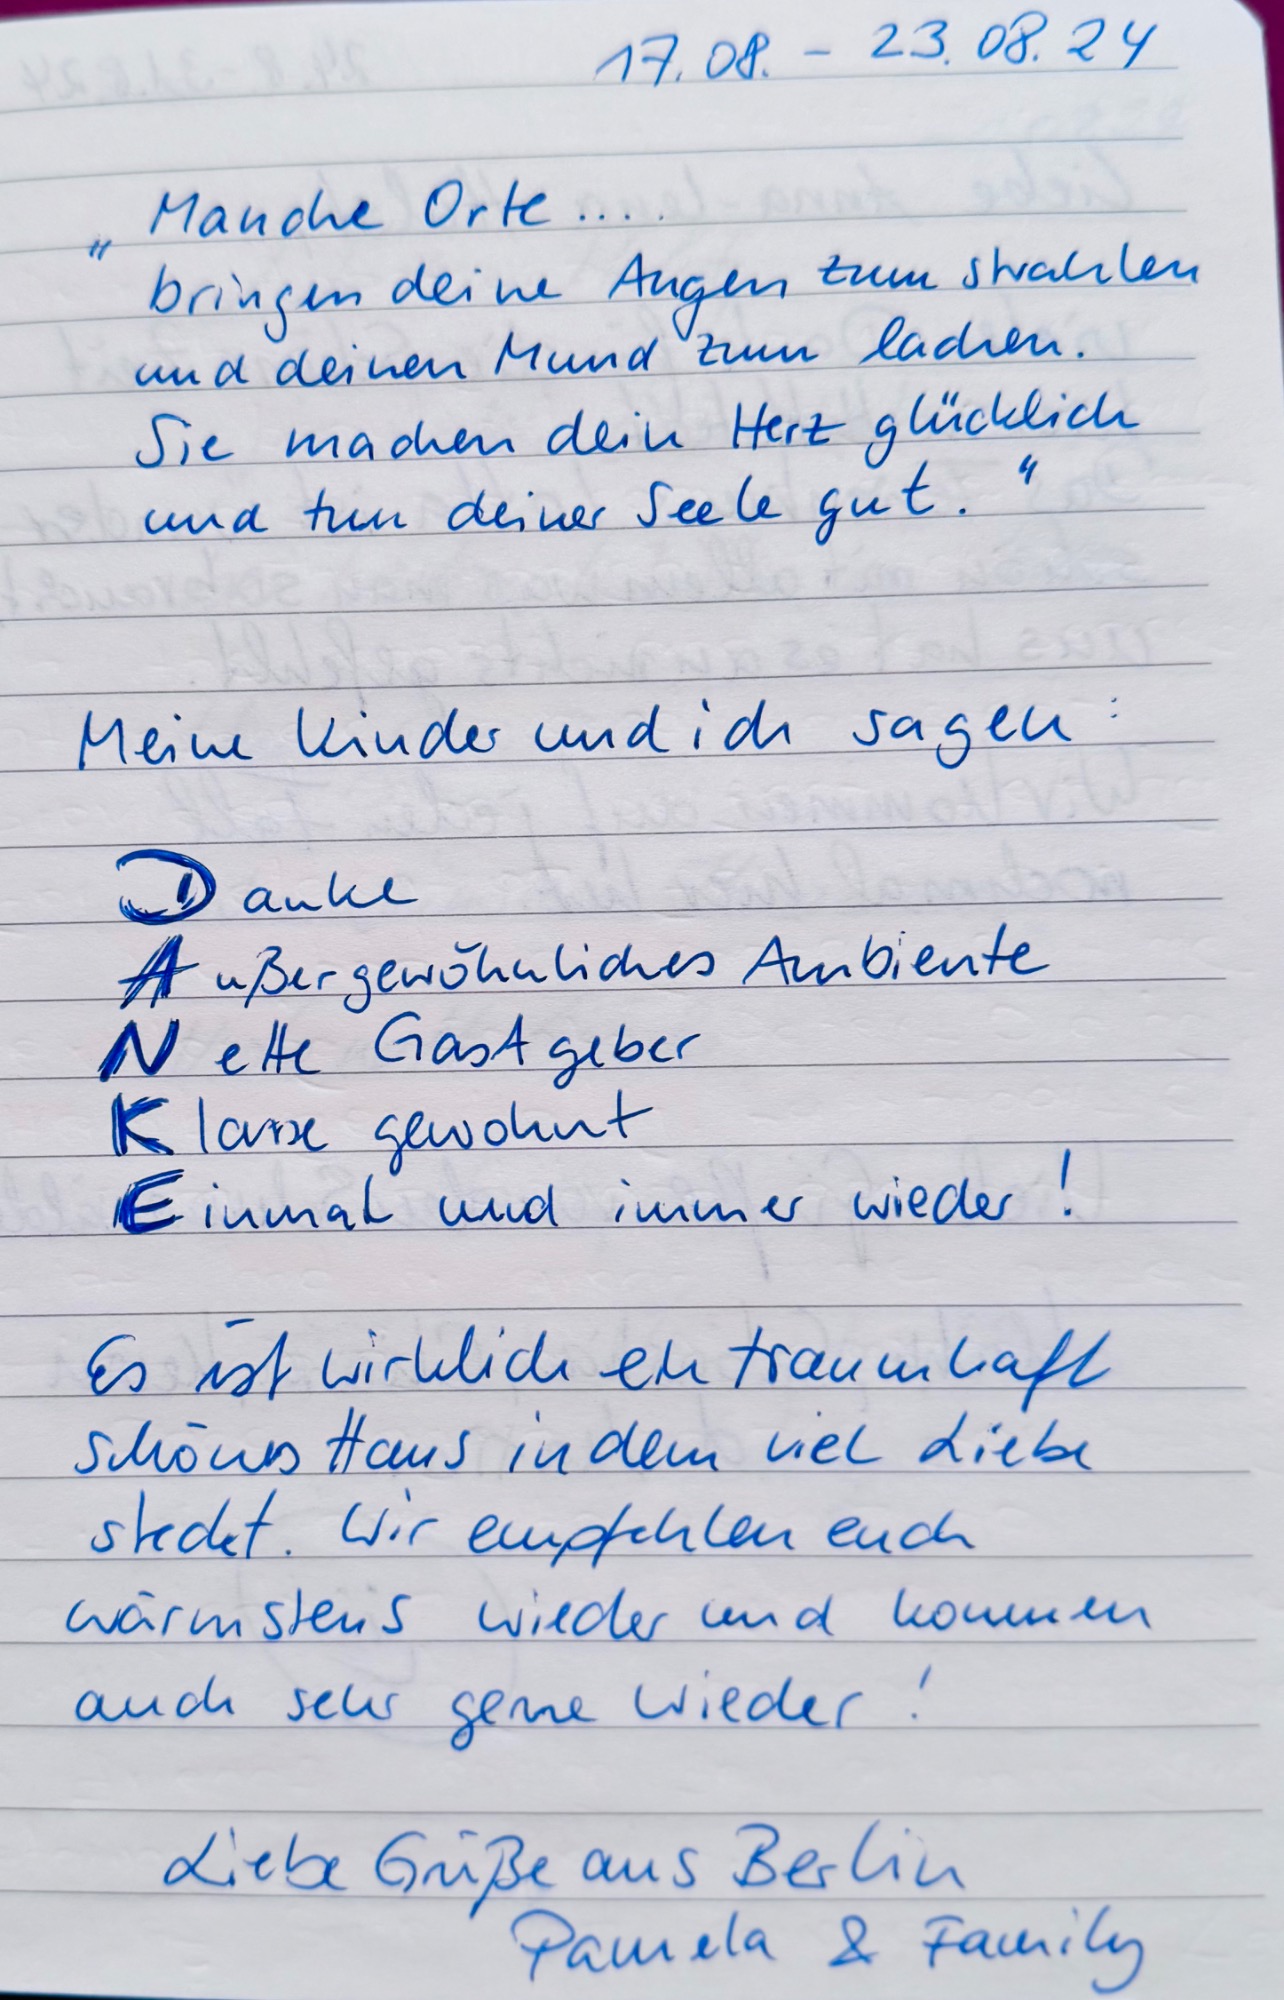 17.08. - 23.08.24
„ Manche Orte ....
bringen deine Augen zum strahlen
und deinen Mund zum lachen.
Sie machen dein Herz glücklich
und tun deiner Seele gut. “
Meine Kinder und ich sagen :
Danke
Außergewöhnliches Ambiente
Nette Gastgeber
Klasse gewohnt
Einmal und immer wieder !
Es ist wirklich ein traumhaft
schönes Haus in dem viel Liebe
steckt. Wir empfehlen euch
wärmstens wieder und kommen
auch sehr gerne wieder !
Liebe Grüße aus Berlin
Pamela & Family